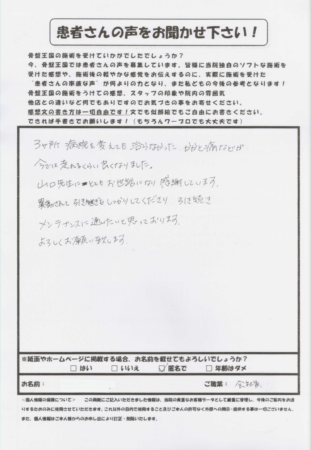 患者さんの声をお聞かせ下さい！
骨盤王国の施術を受けていかがでしたでしょうか？
今、骨盤王国では患者さんの声を募集しています。皆様に当院独自のソフトな施術を
受けた感想や、施術後の軽やかな感覚をお伝えするのに、実際に施術を受けた
患者さんの率直な声 が何よりの力となり、また私どもの今後の参考となります！
骨盤王国の施術をうけての感想、スタッフの印象や院内の雰囲気
他店との違いなど何でもありですのでお気づきの事をお寄せください。
感想文の書き方は一切自由です！文でも似顔絵でもご自由にお書きください。
できれば手書きでお願いします！（もちろんワープロでも大丈夫です）
3ヶ所 病院を変えても 治らなかった かかと痛などが
今では 走れるくらい 良くなりました。
山口先生には とてもお世話になり 感謝してします。
しっかりしてくださり 引き続き
メンテナンスに 通いたいと思っております。
よろしくお願い致します。
※紙面やホームページに掲載する場合、お名前を載せてもよろしいでしょうか？
□ はい □ いいえ ☑ 匿名で □ 年齢はダメ
お名前： ご職業： 会社員
＜個人情報の保護について＞ このご記入いただきました情報は、当院の貴重なお客様データとして厳重に管理し、今後のご案内をお送りするためのみに使用させていただきます。